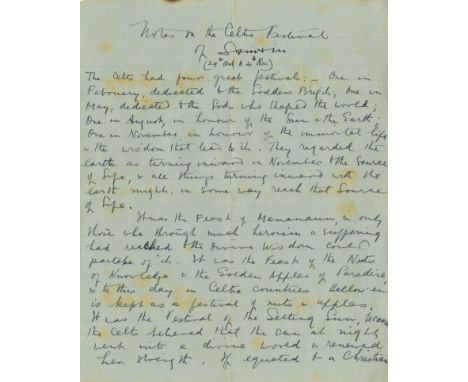 Notes on the Celtic Festival
of Samain
(29th Oct to 4th Nov)
The Celts had four great festivals:— One in
February, dedicated to the Goddess Brigit; One in
May, dedicated to the Gods who shaped the world;
One in August, in honour of the Sun & the Earth;
One in November in honour of the immortal life
& the wisdom that leads to it. They regarded the
earth as turning inward in November to the Source
of Life, & all things turning inward with the
earth might in some way reach that Source
of Life.
It was the Feast of Manannan, & only
those who through much heroism & suffering
had reached to the Divine Wisdom could
partake of it. It was the Feast of the Nuts
of Knowledge & the Golden Apples of Paradise,
& to this day in Celtic Countries Hallow-een
is kept as a festival of nuts & apples.
It was the Festival of the Setting Sun, because
the Celts believed that the sun at night
went into a divine world & renewed
her strength. If equated to a Christian